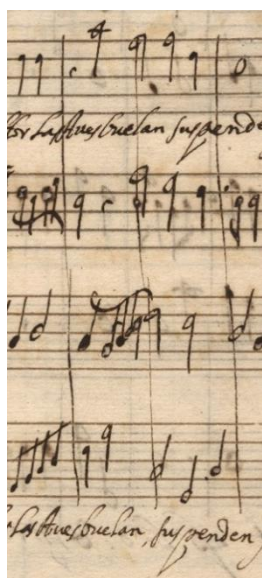 las Aues buelan suspende
las Aues buelan suspenden